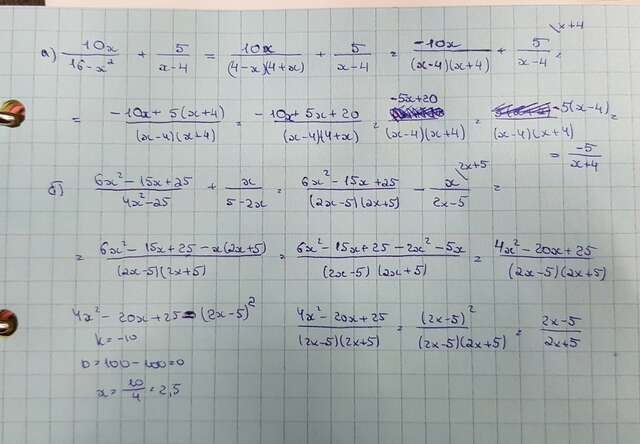 а) 10x/(16-x²) + 5/(x-4) = 10x/((4-x)(4+x)) + 5/(x-4) = -10x/((x-4)(x+4)) + 5/(x-4) \x+4 =
= (-10x + 5(x+4))/((x-4)(x+4)) = (-10x + 5x + 20)/((x-4)(4+x)) = (-5x+20)/((x-4)(x+4)) = -5(x-4)/((x-4)(x+4)) =
= -5/(x+4)
б) (6x² - 15x + 25)/(4x² - 25) + x/(5-2x) = (6x² - 15x + 25)/((2x-5)(2x+5)) - x/(2x-5) \2x+5 =
= (6x² - 15x + 25 - x(2x+5))/((2x-5)(2x+5)) = (6x² - 15x + 25 - 2x² - 5x)/((2x-5)(2x+5)) = (4x² - 20x + 25)/((2x-5)(2x+5))
4x² - 20x + 25 = (2x-5)²
k = -10
D = 100 - 100 = 0
x = 10/4 = 2,5
(4x² - 20x + 25)/((2x-5)(2x+5)) = (2x-5)²/((2x-5)(2x+5)) = (2x-5)/(2x+5)